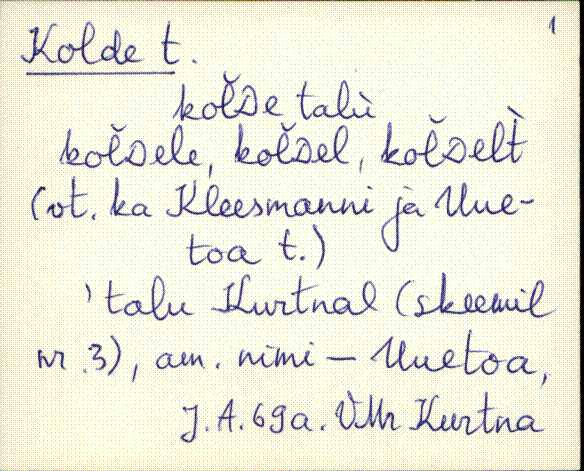 1
Kolde t.
koľDe talù
koľDele, koľDel, koľDelt̀
(vt. ka Kleesmanni ja Uue-
toa t.)
' talu Kurtnal (skeemil
nr. 3), am. nimi – Uuetoa,
J.A. 69a. VMr Kurtna